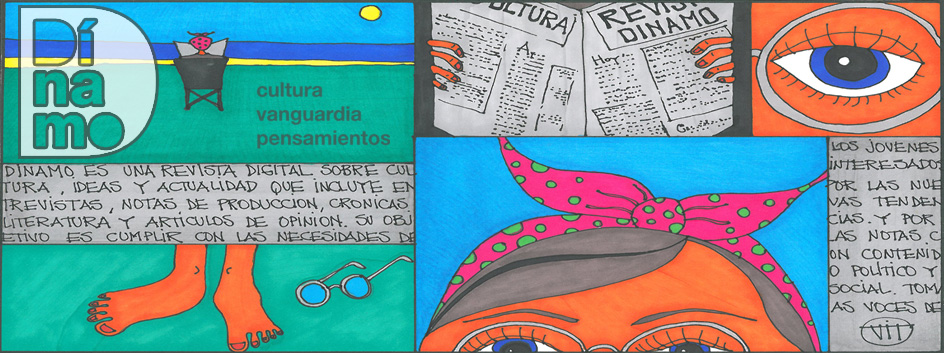 Dí
na
mo
cultura
vanguardia
pensamientos
CULTURA
REVISTA
DINAMO
Hoy
DINAMO ES UNA REVISTA DIGITAL SOBRE CUL
TURA, IDEAS Y ACTUALIDAD QUE INCLUYE EN
TREVISTAS, NOTAS DE PRODUCCION, CRONICAS
LITERATURA Y ARTICULOS DE OPINION. SU OBJ
ETIVO ES CUMPLIR CON LAS NECESIDADES DE
LOS JOVENES
INTERESADOS
POR LAS NUE
VAS TENDEN
CIAS. Y POR
LAS NOTAS C
ON CONTENID
O POLÍTICO Y
SOCIAL. TOMA
AS VOCES DE
VIT